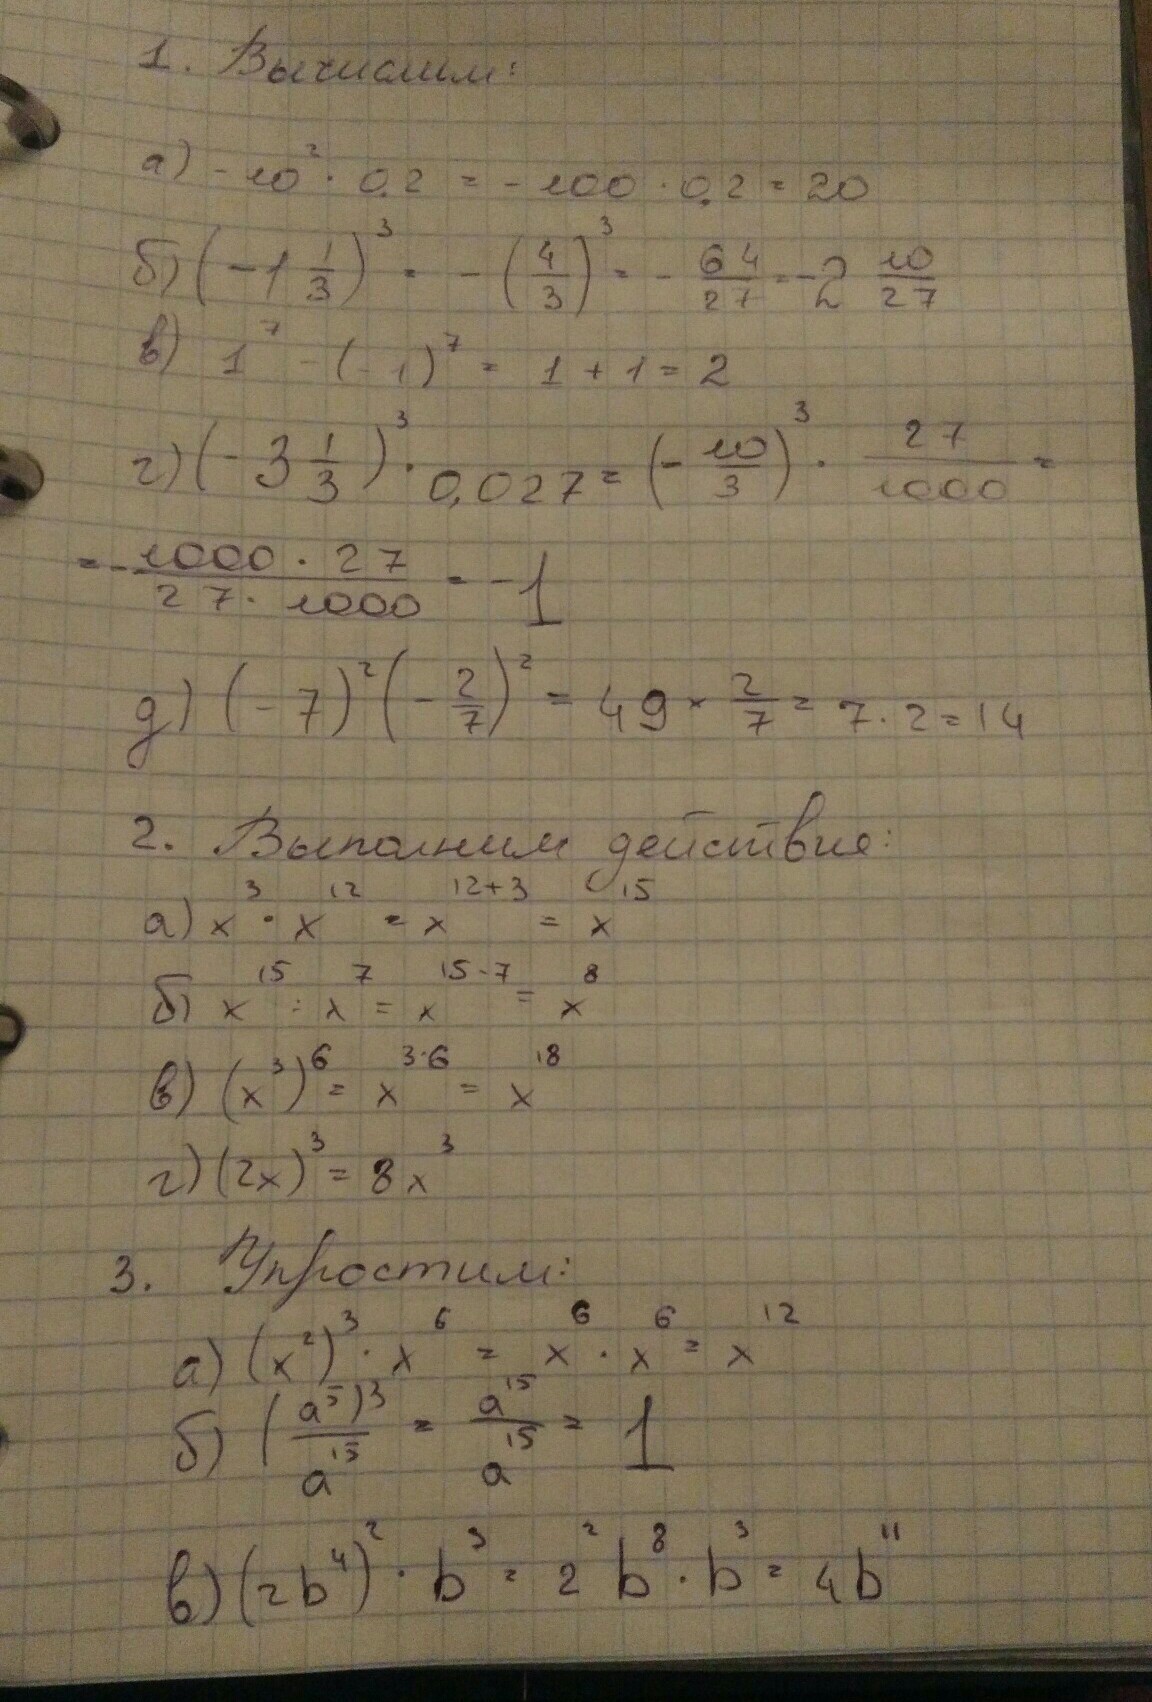 1. Вычислим:
а) -10² · 0,2 = -100 · 0,2 = 20
б) (-1 1/3)³ = -(4/3)³ = - 64/27 = -2 10/27
в) 1⁷ - (-1)⁷ = 1 + 1 = 2
г) (-3 1/3)³ · 0,027 = (-10/3)³ · 27/1000 =
= - 1000 · 27 / 27 · 1000 = -1
д) (-7)² (-2/7)² = 49 × 2/7 = 7 · 2 = 14
2. Выполним действие:
а) x³ · x¹² = x¹²⁺³ = x¹⁵
б) x¹⁵ : x⁷ = x¹⁵⁻⁷ = x⁸
в) (x³)⁶ = x³˙⁶ = x¹⁸
г) (2x)³ = 8x³
3. Упростим:
а) (x²)³ · x⁶ = x⁶ · x⁶ = x¹²
б) (a⁵)³/a¹⁵ = a¹⁵/a¹⁵ = 1
в) (2b⁴)² · b³ = 2² b⁸ · b³ = 4b¹¹